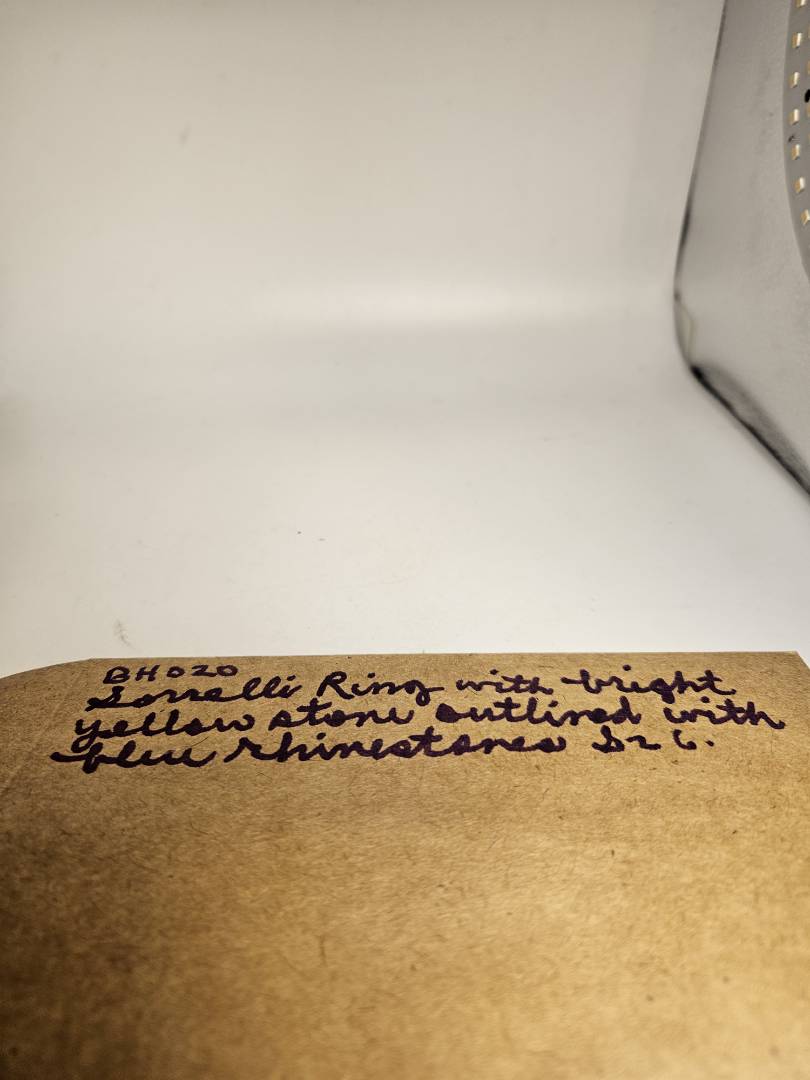 BH020
Sorrelli Ring with bright
yellow stone outlined with
blue rhinestones Sz 6.